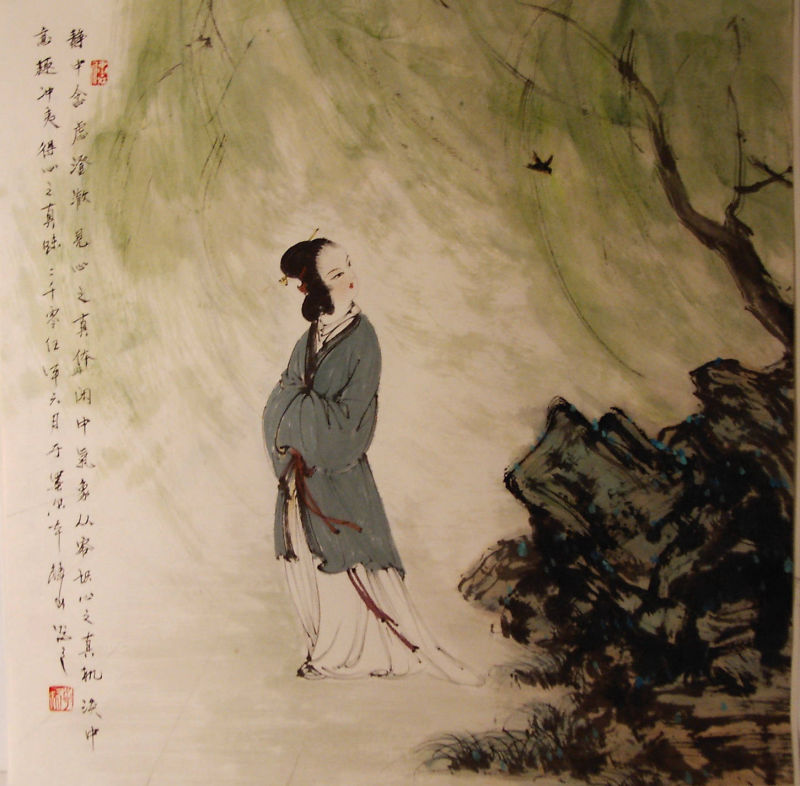 静中念虑澄澈見心之真体闲中氣象从容识心之真机淡中
意趣冲夷得心之真味二千零伍年六月于墨